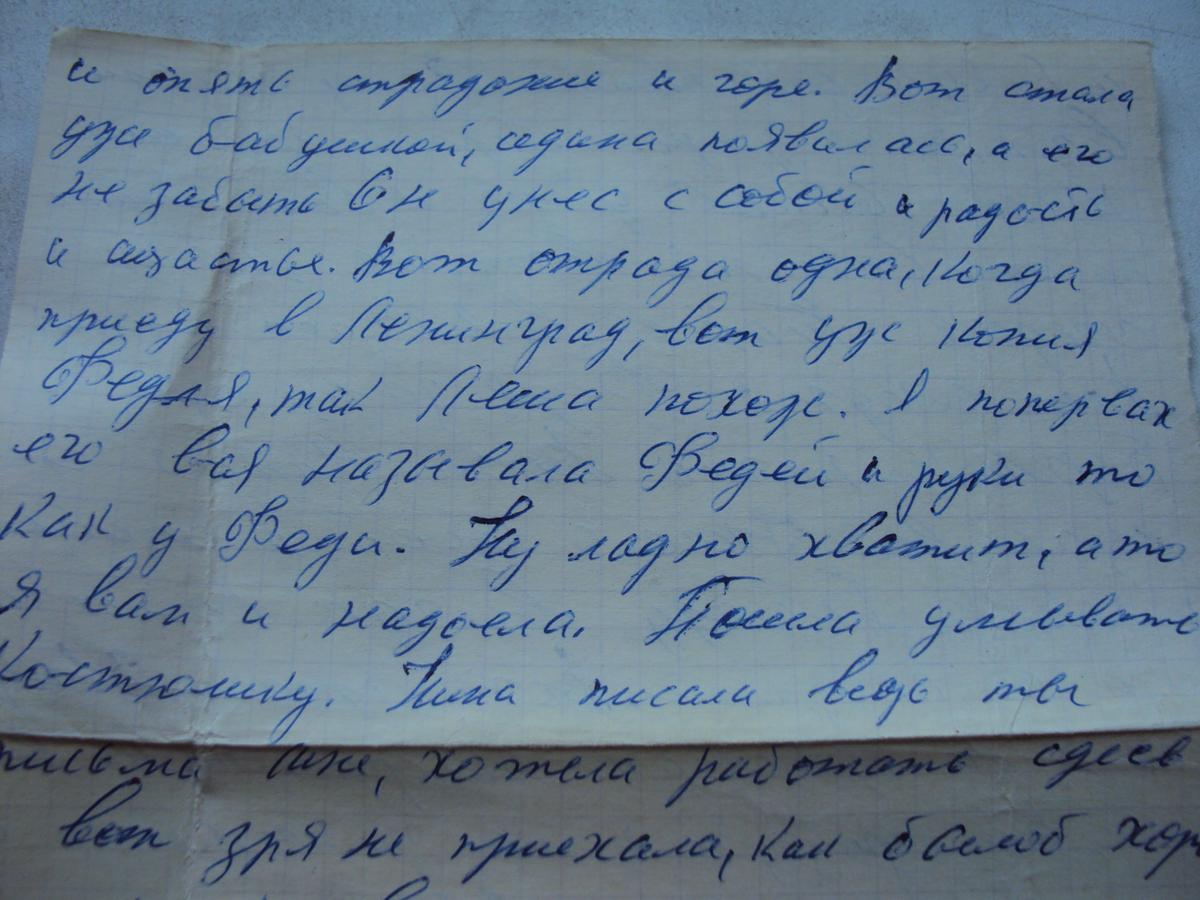 и опять страдание и горе. Вот стала
уже бабушкой, седина появилась, а его
не забыть Он унес с собой и радость
и щастье. Вот отрада одна, когда
приеду в Ленинград, вот уже копия
Федя, так Леша похож. Я попервах
его всё называла Федей и руки то
как у Феди. Ну ладно хватит, а то
я вам и надоела. Пошла умывать
Костюшку. Нина писала ведь ты
письма мне, хотела работать сдесь
вот зря не приехала, как былоб хор